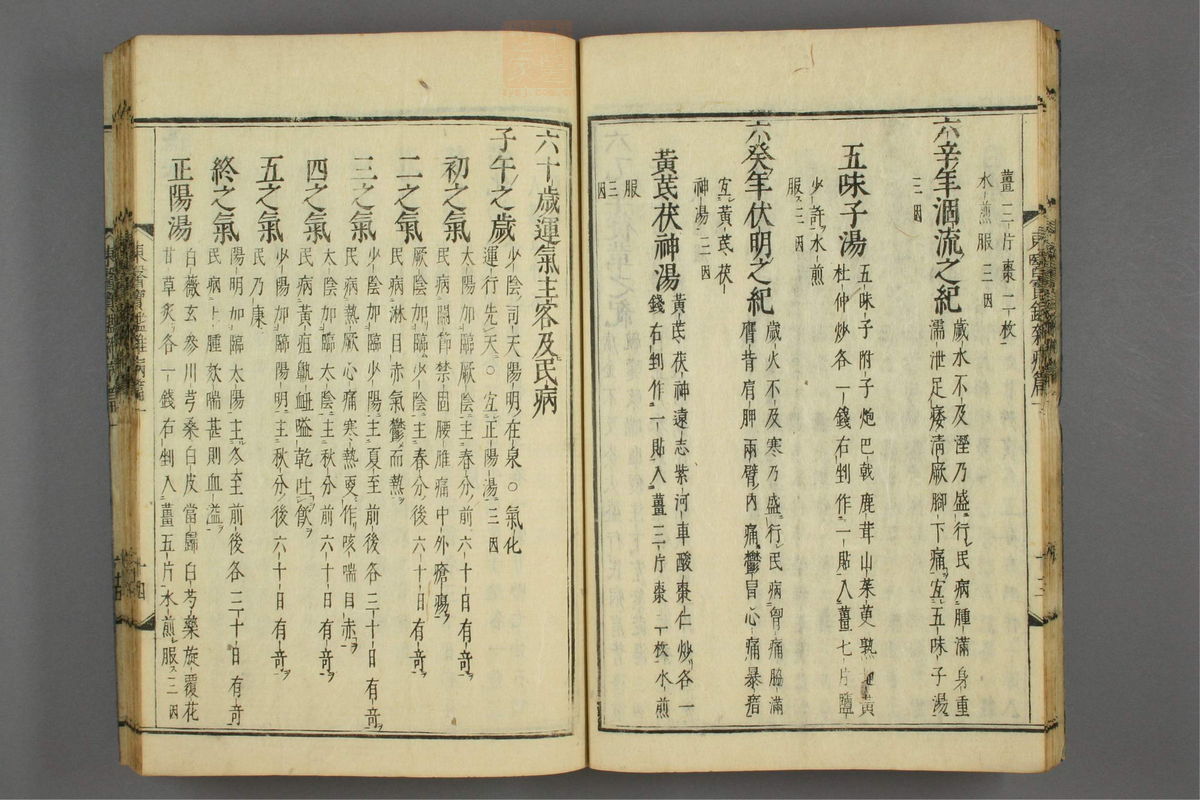 薑三片棗二枚
水煎服三因
六辛年涸流之紀
歲水不及溼乃盛行民病腫滿身重
濡泄足痿淸厥腳下痛宜五味子湯
三因
五味子湯
五味子附子炮巴戟鹿茸山茱萸熟地黃
杜仲炒各一錢右剉作一貼入薑七片鹽
少許水煎
服三因
六癸年伏明之紀
歲火不及寒乃盛行民病胷痛脇滿
膺背肩胛兩臂內痛鬱冒心痛暴瘖
宜黃芪茯
神湯三因
黃芪茯神湯
黃芪茯神遠志紫河車酸棗仁炒各一
錢右剉作一貼入薑三片棗一枚水煎
服
三因
六十歲運氣主客及民病
子午之歲
少陰司天陽明在泉○氣化
運行先天○宜正陽湯三因
初之氣
太陽加臨厥陰主春分前六十日有奇
民病關節禁固腰脽痛中外瘡瘍
二之氣
厥陰加臨少陰主春分後六十日有奇
民病淋目赤氣鬱而熱
三之氣
少陰加臨少陽主夏至前後各三十日有奇
民病熱厥心痛寒熱更作咳喘目赤
四之氣
太陰加臨太陰主秋分前六十日有奇
民病黃疸鼽衄嗌乾吐飮
五之氣
少陽加臨陽明主秋分後六十日有奇
民乃康
終之氣
陽明加臨太陽主冬至前後各三十日有奇
民病上腫欬喘甚則血溢
正陽湯
白薇玄參川芎桑白皮當歸白芍藥旋覆花
甘草炙各一錢右剉入薑五片水煎服三因